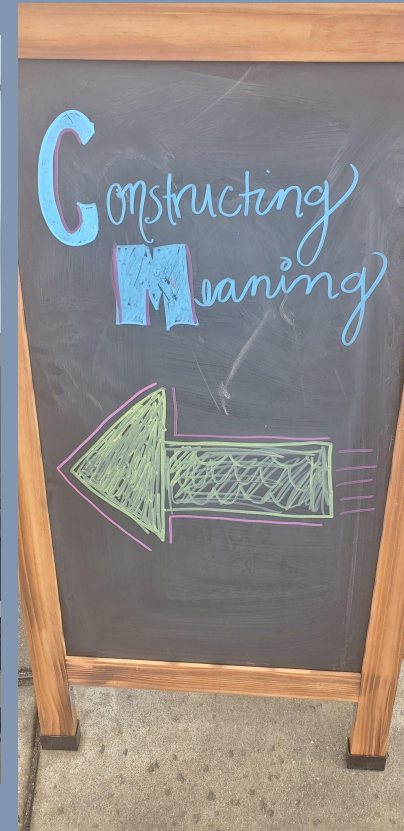 Constructing
Meaning